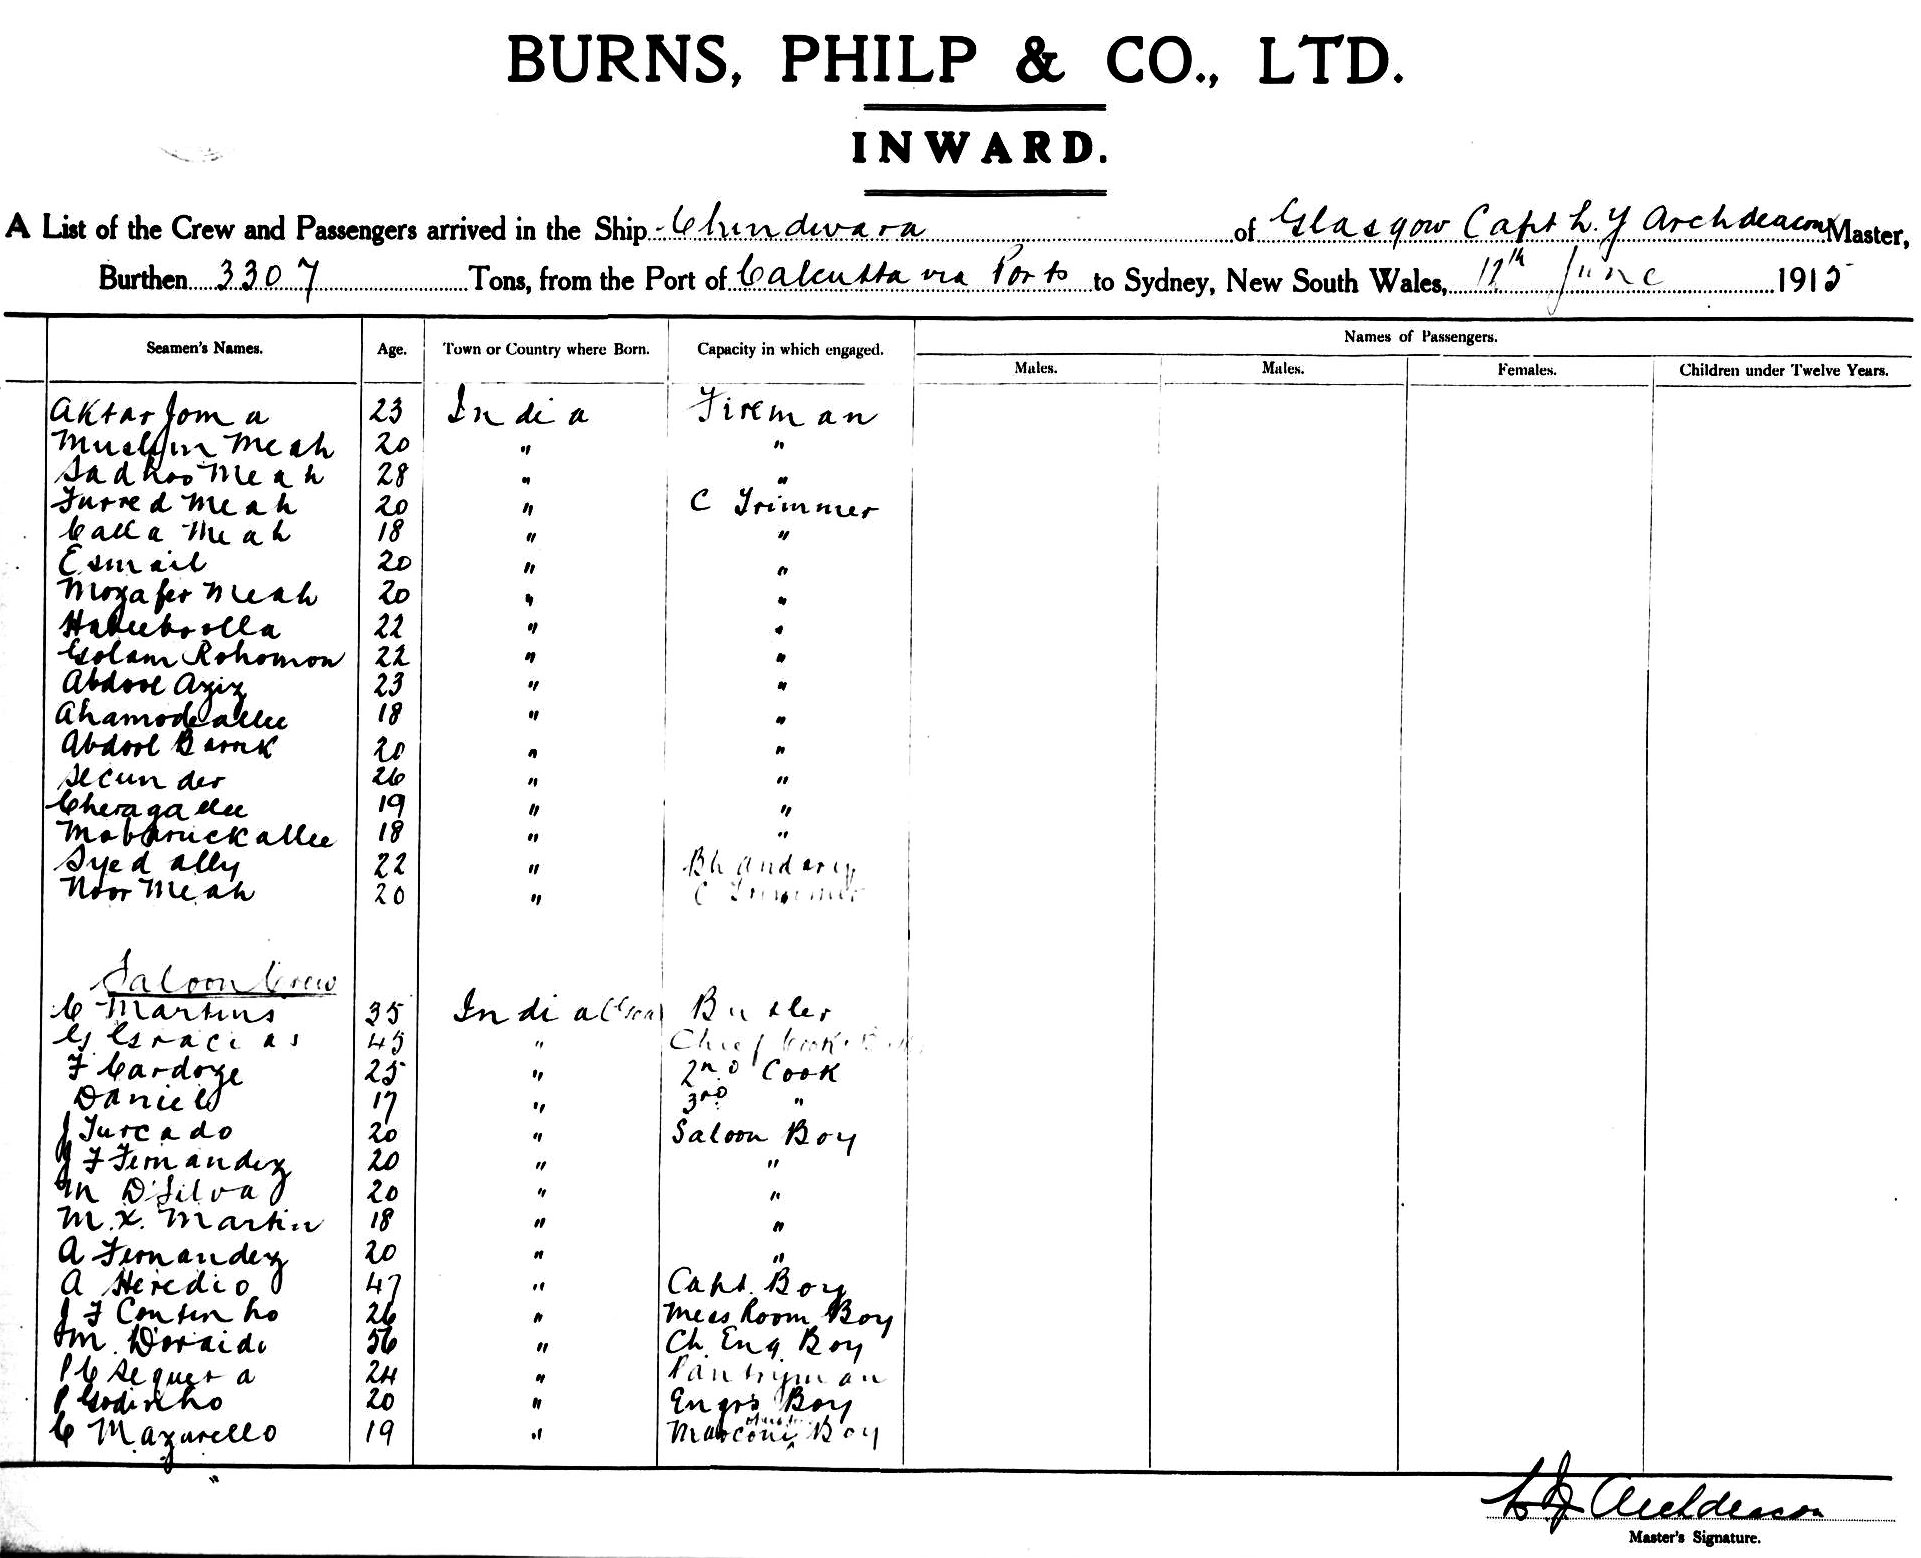 BURNS, PHILP & CO., LTD.
INWARD.
A List of the Crew and Passengers arrived in the Ship Chindwara of Glasgow Capt L. Y Archdeacon Master,
Burthen 3307 Tons, from the Port of Calcutta via Ports to Sydney, New South Wales, 12th June 1915
Names of Passengers.
Seamen's Names. Age. Town or Country where Born. Capacity in which engaged. Males. Males. Females. Children under Twelve Years.
Aktar Joma 23 India Fireman
Muslim Meah 20 " "
Sadhoo Meah 28 " "
Furred Meah 20 " C Trimmer
Calla Meah 18 " "
Esmail 20 " "
Mozafer Meah 20 " "
Habeeboolla 22 " "
Golam Rohomon 22 " "
Abdool Aziz 23 " "
Ahamodeallee 18 " "
Abdool Barrik 20 " "
Secunder 26 " "
Cheragallee 19 " "
Mobaruckallee 18 " "
Syed Ally 22 " Bhandary
Noor Meah 20 " C Trimmer
Saloon Crew
C Martins 35 India (Goa) Butler
G Gracias 45 " Chief Cook
F Cardoze 25 " 2nd Cook
Daniel 17 " 3rd "
J Furcado 20 " Saloon Boy
J F Fernandez 20 " "
M D'Silva 20 " "
M. X. Martin 18 " "
A Fernandez 20 " "
A Heredio 47 " Capt. Boy
J F Continho 26 " Mess Room Boy
M. 56 " Ch. Eng. Boy
P C Sequera 24 " Pantryman
P Godinho 20 " Engrs Boy
C Mazarello 19 " Marconi Boy
"
Archdeacon
Master's Signature.